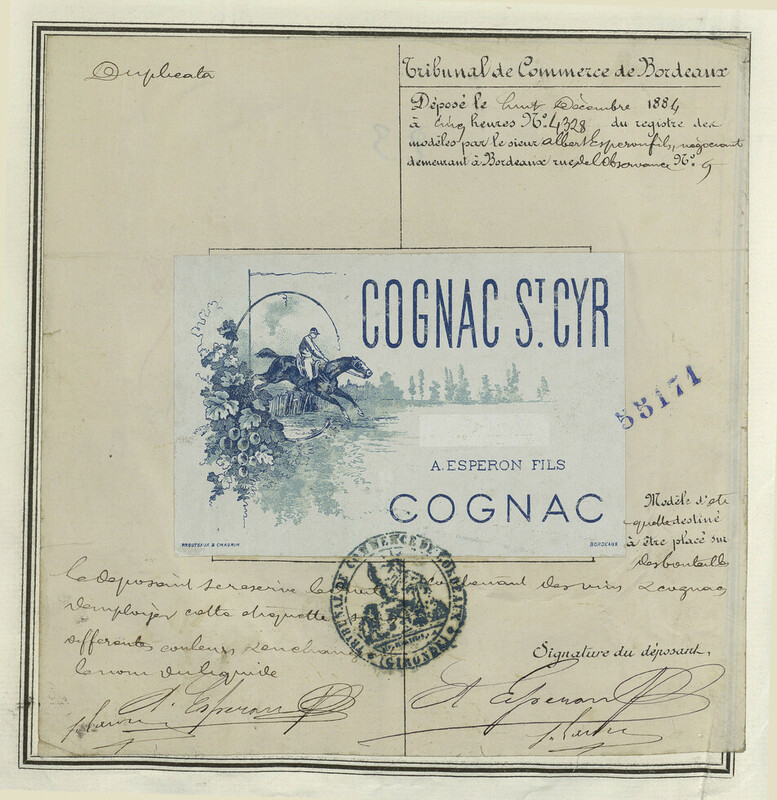 Duplicata
Tribunal de Commerce de Bordeaux
Déposé le huit Décembre 1884
à cinq heures No. 4328 du registre des
modèles par le sieur Albert Esperon fils, négociant
demeurant à Bordeaux rue de l'Observance No. 9
COGNAC ST. CYR
A. ESPERON FILS
COGNAC
PROUTEAUX & CHADRIN
BORDEAUX
55171
Modèle d'éti
quette destiné
à être placé sur
des bouteilles
contenant des vins & cognac
Le déposant se reserve le droit
d'employer cette étiquette
différentes couleurs & en change
le nom du liquide
TRIBUNAL DE COMMERCE DE BORDEAUX
(GIRONDE)
Signature du déposant,
A. Esperon
A Esperon